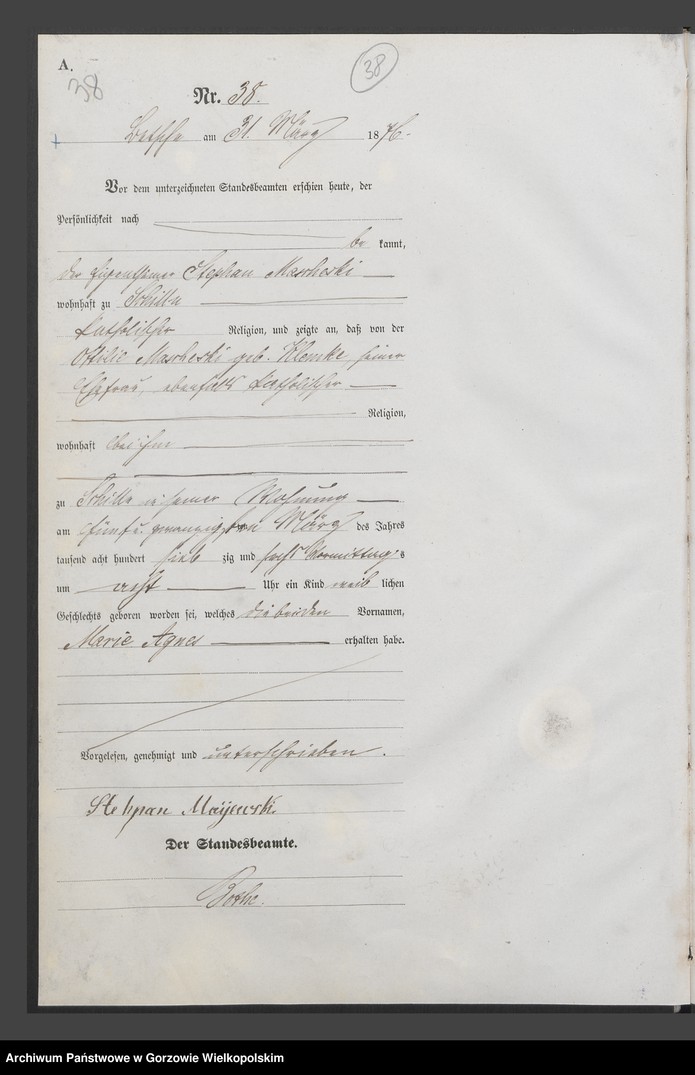 A.
38
38
Nr. 38.
Betsche am 31 März 1876.
Vor dem unterzeichneten Standesbeamten erschien heute, der
Persönlichkeit nach
be kannt,
der Eigenthümer Stephan Mascheski
wohnhaft zu Schilln
katholischer Religion, und zeigte an, daß von der
Ottilie Mascheski geb. Klemke, seiner
Ehefrau, ebenfalls katholischer
Religion,
wohnhaft bei ihm
zu Schilln in seiner Wohnung
am fünf u. zwanzigsten März des Jahres
tausend acht hundert sieb zig und sechs Vormittags
um acht Uhr ein Kind weib lichen
Geschlechts geboren worden sei, welches die beiden Vornamen,
Marie Agnes erhalten habe.
Vorgelesen, genehmigt und unterschrieben.
Stehpan Maijewski
Der Standesbeamte.
Archiwum Państwowe w Gorzowie Wielkopolskim